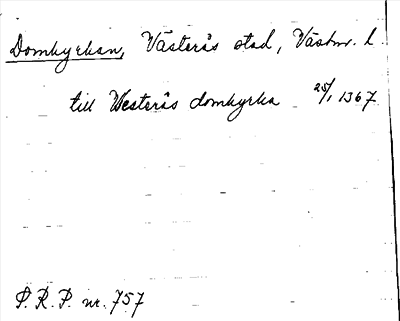 Domkyrkan, Västerås stad, Västm. l.
till Westerås domkyrka 25/1 1367
P. R. P. nr. 757